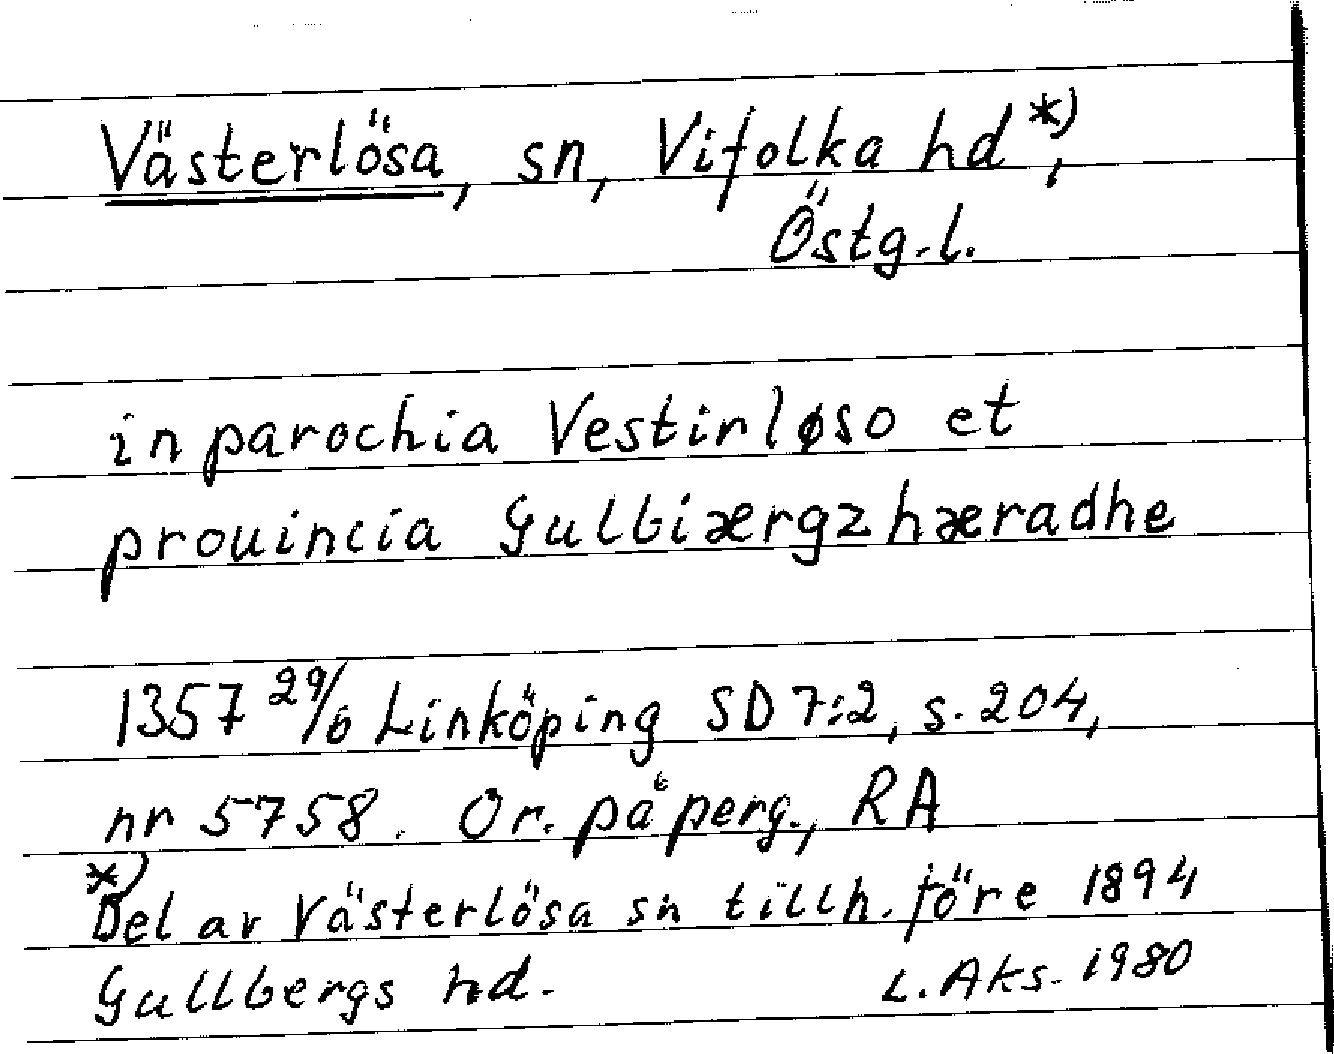 Västerlösa, sn, Vifolka hd *),
Östg.l.
in parochia Vestirløso et
prouincia Gulbiærgzhæradhe
1357 29/6 Linköping SD 7:2, s. 204,
nr 5758. Or. på perg., RA
*)
Del av Västerlösa sn tillh. före 1894
Gullbergs hd. L. Aks. 1980